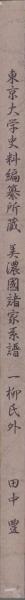 東京大学史料編纂所蔵 美濃國諸家系譜 一柳氏外 田中豊